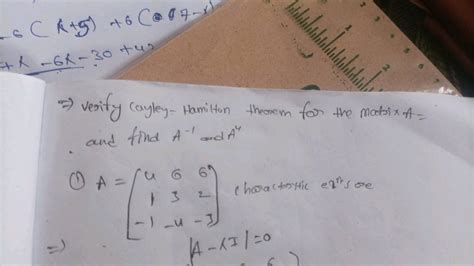 -6(λ+5) +6(
-6λ-30 +42
=> verify Cayley-Hamilton theorem for the matrix A=
and find A⁻¹ and A⁴
① A = [4 6 6
1 3 2
-1 -4 -3] characteristic eqⁿs are
=> |A-λI|=0